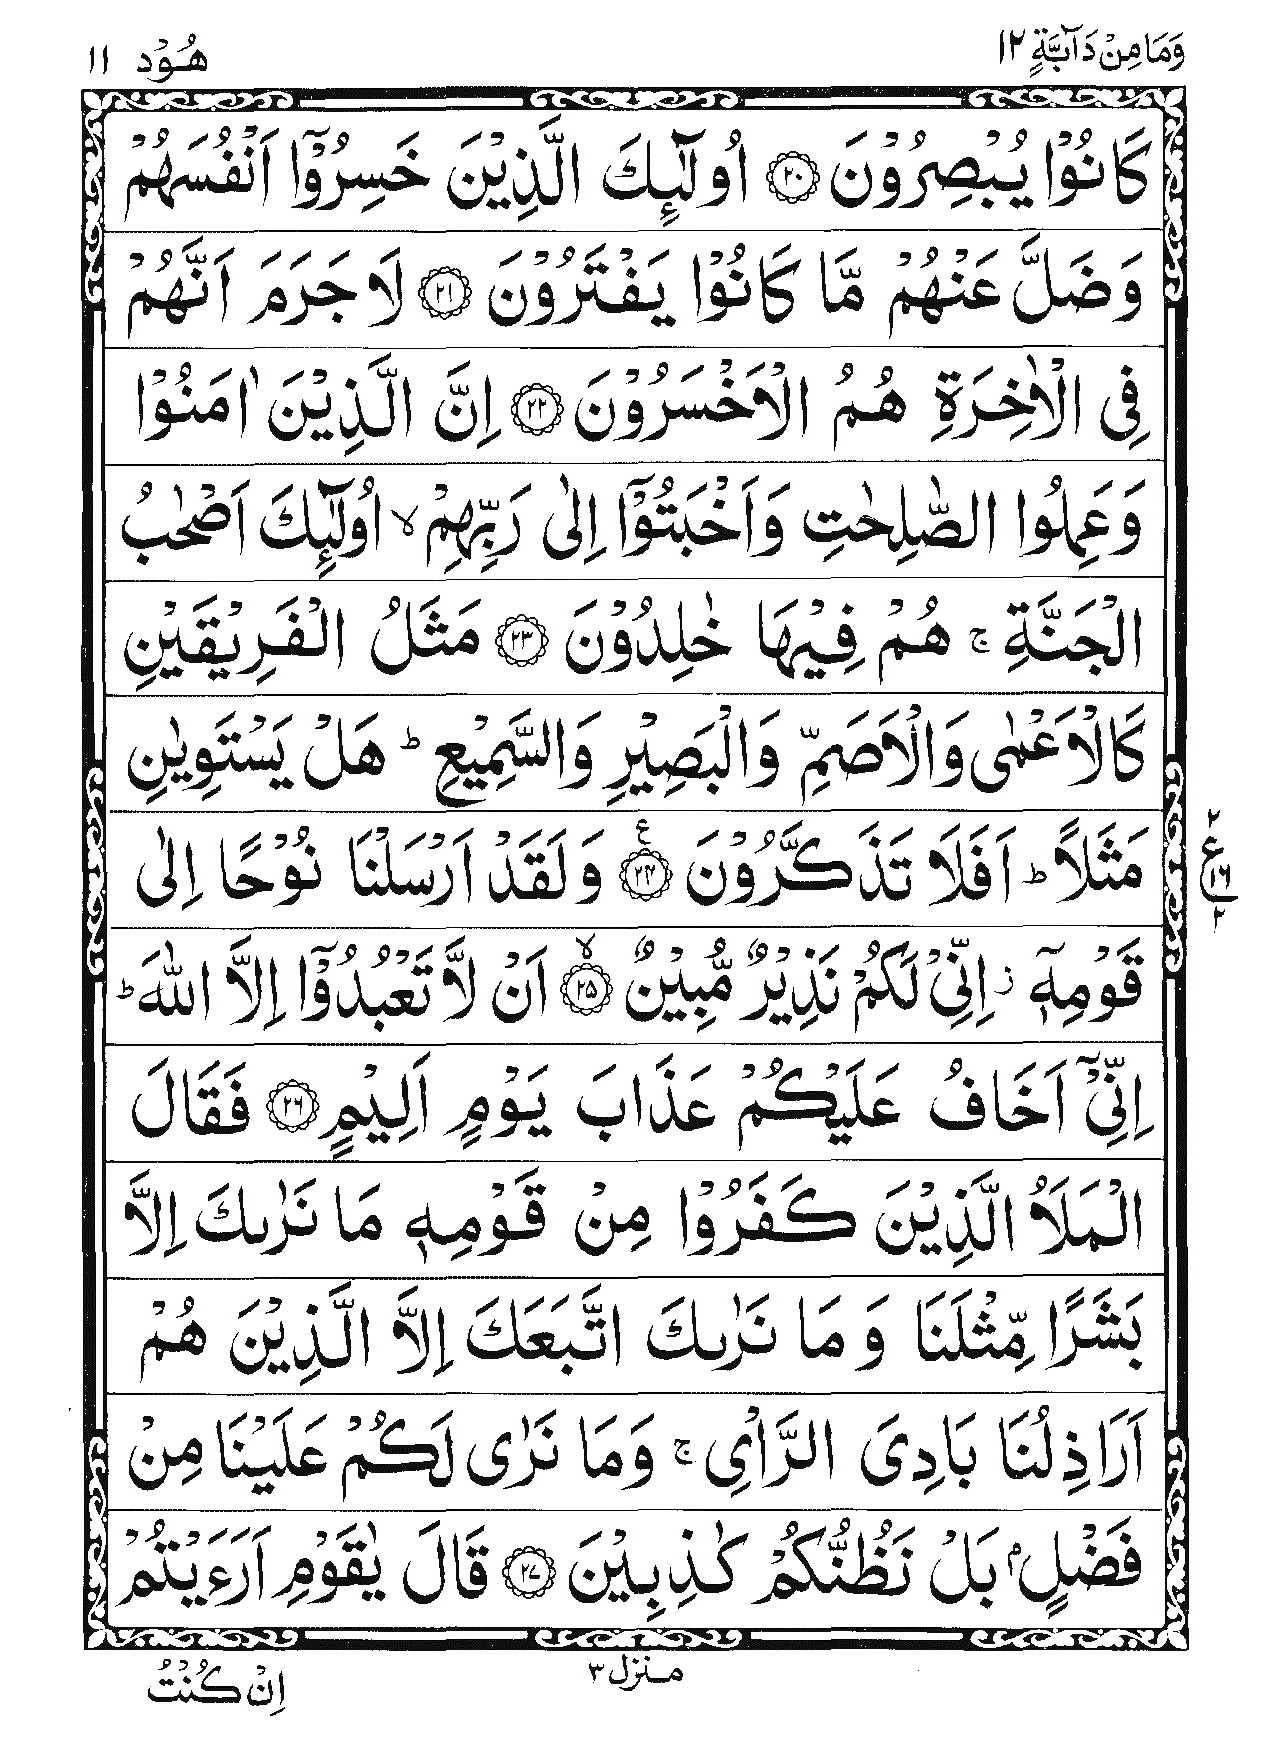 وَمَا مِنْ دَآبَّةٍ ١٢
هُوْد ١١
كَانُوْا يُبْصِرُوْنَ ﴿٢٠﴾ اُولٰٓئِكَ الَّذِيْنَ خَسِرُوْٓا اَنْفُسَهُمْ
وَضَلَّ عَنْهُمْ مَّا كَانُوْا يَفْتَرُوْنَ ﴿٢١﴾ لَا جَرَمَ اَنَّهُمْ
فِى الْاٰخِرَةِ هُمُ الْاَخْسَرُوْنَ ﴿٢٢﴾ اِنَّ الَّذِيْنَ اٰمَنُوْا
وَعَمِلُوا الصّٰلِحٰتِ وَاَخْبَتُوْٓا اِلٰى رَبِّهِمْ ۙ اُولٰٓئِكَ اَصْحٰبُ
الْجَنَّةِ ۚ هُمْ فِيْهَا خٰلِدُوْنَ ﴿٢٣﴾ مَثَلُ الْفَرِيْقَيْنِ
كَالْاَعْمٰى وَالْاَصَمِّ وَالْبَصِيْرِ وَالسَّمِيْعِ ؕ هَلْ يَسْتَوِيٰنِ
مَثَلًا ؕ اَفَلَا تَذَكَّرُوْنَ ﴿٢٤﴾ ع وَلَقَدْ اَرْسَلْنَا نُوْحًا اِلٰى
٢ ع ١٦ ٢
قَوْمِهٖٓ ز اِنِّىْ لَكُمْ نَذِيْرٌ مُّبِيْنٌ ﴿٢٥﴾ ۙ اَنْ لَّا تَعْبُدُوْٓا اِلَّا اللّٰهَ ؕ
اِنِّىْٓ اَخَافُ عَلَيْكُمْ عَذَابَ يَوْمٍ اَلِيْمٍ ﴿٢٦﴾ فَقَالَ
الْمَلَاُ الَّذِيْنَ كَفَرُوْا مِنْ قَوْمِهٖ مَا نَرٰىكَ اِلَّا
بَشَرًا مِّثْلَنَا وَمَا نَرٰىكَ اتَّبَعَكَ اِلَّا الَّذِيْنَ هُمْ
اَرَاذِلُنَا بَادِىَ الرَّاْىِ ۚ وَمَا نَرٰى لَكُمْ عَلَيْنَا مِنْ
فَضْلٍۭ بَلْ نَظُنُّكُمْ كٰذِبِيْنَ ﴿٢٧﴾ قَالَ يٰقَوْمِ اَرَءَيْتُمْ
منزل ٣
اِنْ كُنْتُ